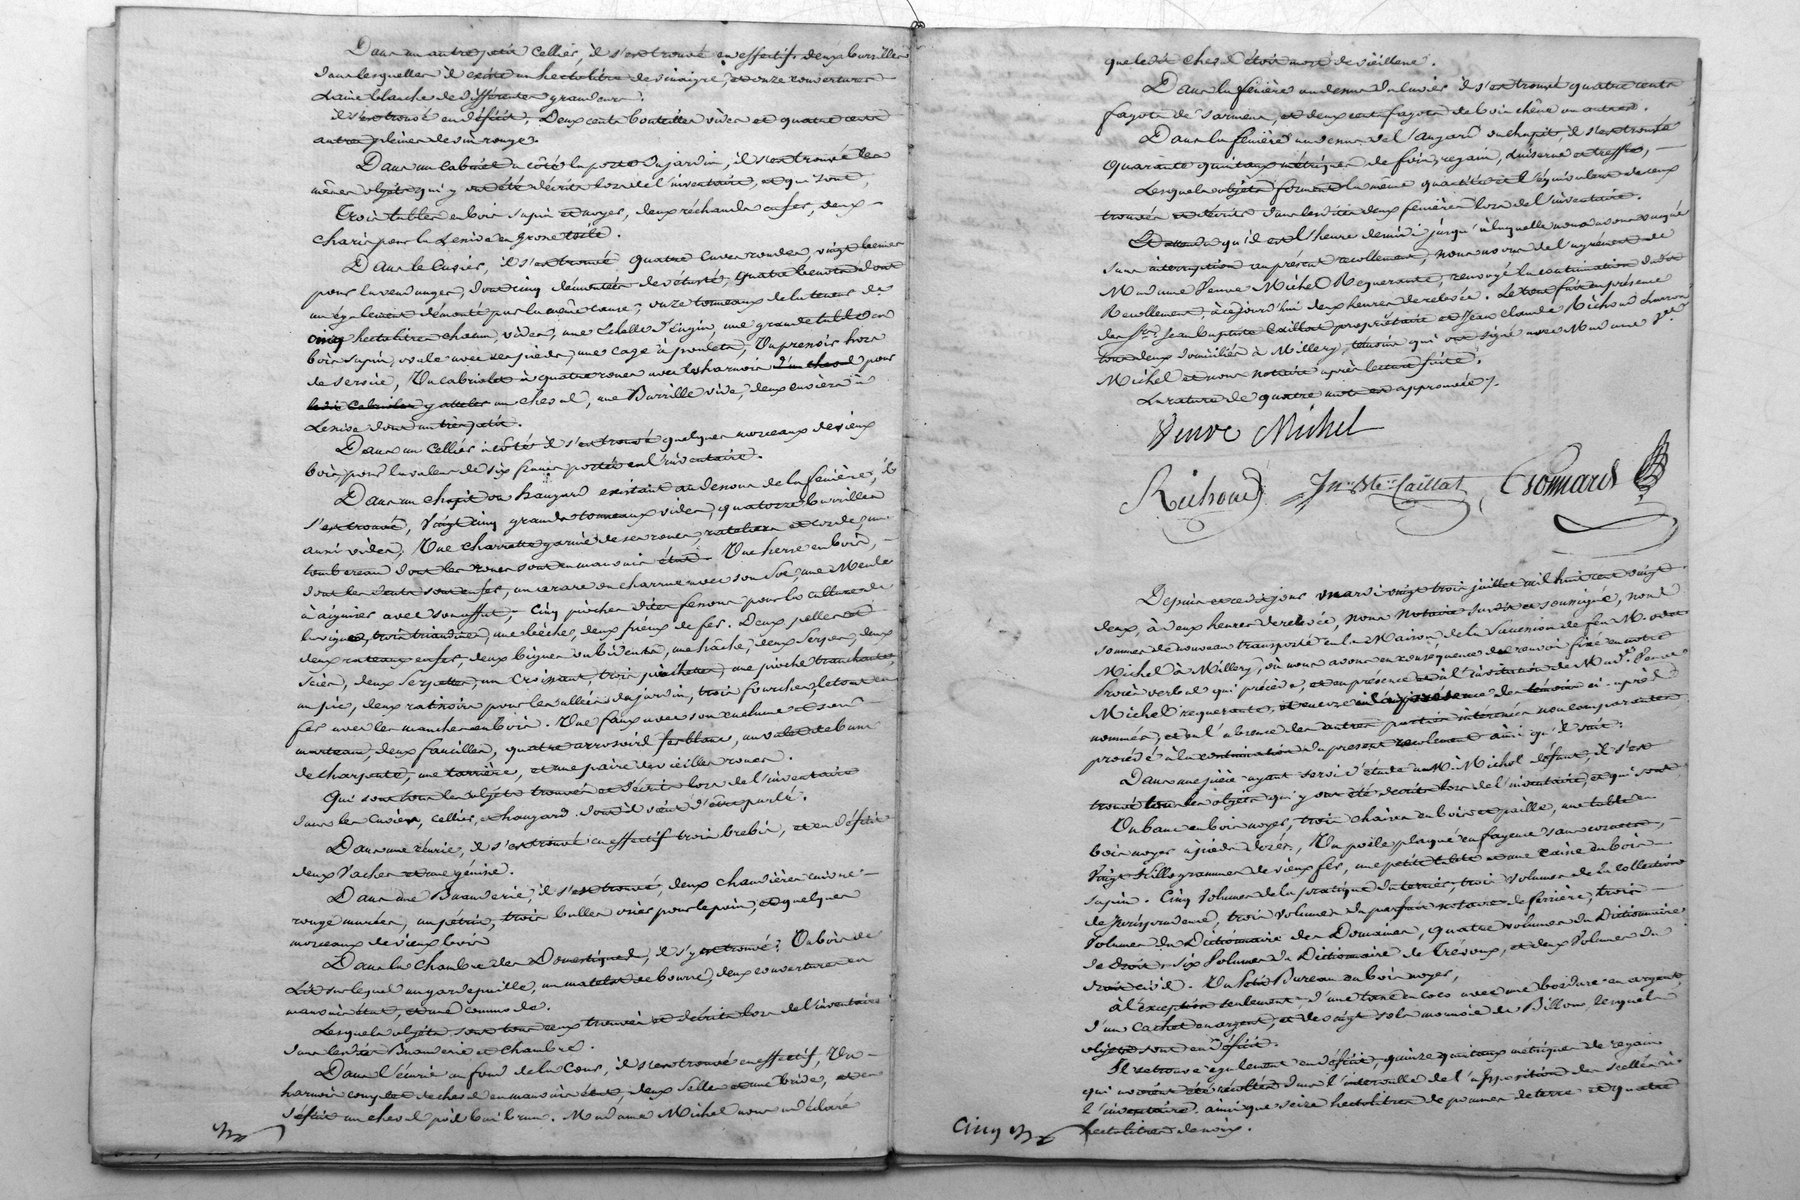 Dans un autre petit cellier, il s'est trouvé en effectif deux barrilles
dans lesquelles il existe un hectolitre de vinaigre, et onze couvertures
Laine blanche de différentes grandeurs.
il s'est trouvé en déficit, Deux cents bouteilles vides et quatre cents
autres pleines de vin rouge.
Dans un cabinet à côté la porte du jardin, il s'est trouvé les
mêmes objets qui y ont été décrits lors de l'inventaire, et qui sont,
Trois tables en bois sapin et noyer, deux réchauds en fer, deux
charis pour la Lessive en grosse toile.
Dans le Cuvier, il s'est trouvé quatre cuves rondes, vingt bennes
pour la vendange, dont cinq démontées de vétusté, quatre benots dont
un également démonté par la même cause, onze tonneaux de la teneur de
cinq hectolitres chacun, vides, une Echelle d'Engin, une grande table en
bois sapin, ovale avec ses pieds, une cage à poulets, Un pressoir hors
de service, Un cabriolet à quatre roues avec le harnois d'un cheval pour
ledit cabriolet y atteler un cheval, une Barrille vide, deux cuviers à
Lessive dont un très petit.
Dans un Cellier à côté il s'est trouvé quelques morceaux de vieux
bois pour la valeur de six francs portés en l'inventaire.
Dans un chapit ou hangard existant au dessous de la fenière, il
s'est trouvé, Vingt cinq grands tonneaux vides, quatorze barrilles
aussi vides, Une charrette garnie de ses roues, rateliers et corde, un
tombereau dont les roues sont en mauvais état. Une herse en bois,
dont les dents sont en fer, un araire ou charrue avec son Soc, une Meule
à aiguiser avec son affut, cinq pioches dites fessous pour la culture de
la vigne, trois triandines, une bêche, deux prieux de fer. Deux pelles et
deux rateaux en fer, deux bigues ou bidents, une hache, deux Serpes, deux
Scies, deux Serpettes, un Croissant, trois piochettes, une pioche tranchante,
un pic, deux ratissoirs pour les allées du jardin, trois fourches, le tout en
fer avec les manches en bois. Une faux avec son enclume et son
marteau, deux faucilles, quatre arrosoirs fer blanc, un valet de banc
de charpente, une tarrière, et une paire de vieilles roues.
Qui sont tous les objets trouvés et décrits lors de l'inventaire
dans les Cuviers, cellier, et hangard dont il vient d'être parlé.
Dans une écurie, il s'est trouvé en effectif trois brebis, et en déficit
deux Vaches et une génisse.
Dans une Buanderie, il s'est trouvé, deux chaudières cuivre
rouge murées, un pétrin, trois balles osier pour le pain, et quelques
morceaux de vieux bois
Dans la chambre des Domestiques, il s'y est trouvé, Un bois de
Lit sur lequel un garde paille, un matelat de bourre, deux couvertures en
mauvais état, et une commode.
Lesquels objets sont tous ceux trouvés et décrits lors de l'inventaire
dans lesdites Buanderie et chambre.
Dans l'écurie au fond de la Cour, il s'est trouvé en effectif, Un
harnois complet de cheval en mauvais état, deux Selles et une bride, et en
déficit un cheval poil bai brun. Madame Michel nous a déclaré
que ledit cheval étoit mort de vieillesse.
Dans la fenière au dessus du Cuvier il s'est trouvé quatre cents
fagots de Sarment, et deux cents fagots de bois chêne ou autres.
Dans la fenière au dessus de l'angard ou chapit, il s'est trouvé
Quarante quintaux métriques de foin, regain, Luzerne et treffle,
Lesquels objets forment la même quantité et l'équivalent de ceux
trouvés et décrits dans lesdites deux fenières lors de l'inventaire.
Et attendu qu'il est l'heure de midi jusqu'à laquelle nous avons vaqué
sans interruption au présent recollement, nous avons de l'agrément de
Madame Veuve Michel Requerante, renvoyé la continuation dudit
Recollement, à cejourd'hui deux heures de relevée. Le tout fait en présence
des Srs Jean Baptiste Caillat propriétaire et Jean Claude Richoud charron
tous deux domiciliés à Millery, témoins qui ont signé avec Madame Ve
Michel et nous notaire après lecture faite.
La rature de quatre mots est approuvée.
Veuve Michel
Richoud Jn Bte Caillat
Depuis et cedit jour mardi vingt trois juillet mil huit cent vingt
deux, à deux heures de relevée, nous Notaire susdit et soussigné, nous
sommes de nouveau transporté en la Maison de la Succession de feu M.
Michel à Millery, où nous avons en conséquence du renvoi fixé en notre
Procès verbal qui précède, et en présence et à l'invitation de Made Veuve
Michel requerante, et encore en la présence des témoins ci-après
nommés, et en l'absence des autres parties intéressées non comparantes
procédé à la continuation du présent recolement ainsi qu'il suit:
Dans une pièce ayant servi d'étude au Mr. Michel défunt, il s'est
trouvé tous les objets qui y ont été décrits lors de l'inventaire, et qui sont
Un banc en bois noyer, trois chaises en bois et paille, une table en
bois noyer à pieds dorés, Un poële plaqué en fayence sans cornets,
Vingt Killogrammes de vieux fer, une petite table et une caisse en bois
sapin. Cinq Volumes de la pratique du terrier, trois Volumes de la collection
de Jurisprudence, trois volumes du parfait notaire de ferrière, trois
Volumes du Dictionnaire des Domaines, quatre volumes du Dictionnaire
de Droit, six Volumes du Dictionnaire de Trévoux, et deux Volumes du
droit civil. Un petit Bureau en bois noyer,
à l'exception seulement d'une tasse en coco avec une bordure en argent,
d'un cachet en argent, et de vingt sols monnoie de Billon, lesquels
objets sont en déficit.
Il se trouve également en déficit, quinze quintaux métriques de regain
qui avoient été récoltés dans l'intervalle de l'apposition des scellés à
l'inventaire. ainsi que seize hectolitres de pommes de terre et quatre
hectolitres de noix.
Cinq